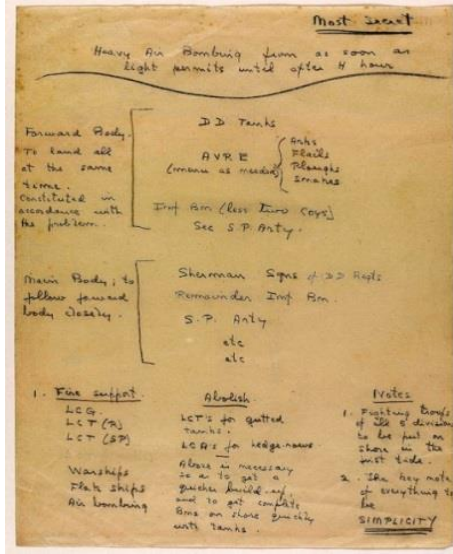 Most Secret
Heavy Air Bombing from as soon as
light permits until after H hour
Forward Body.
To land all
at the same
time.
Constituted in
accordance with
the problem.
DD Tanks
AVRE
(menace as needed)
Arks
Flails
Ploughs
Snakes
Inf Bn (less two Coys)
See S.P. Arty.
Main Body; to
follow forward
body closely.
Sherman Sqns of DD Regts
Remainder Inf Bn.
S.P. Arty
etc
etc
1. Fire support.
LCG.
LCT (R)
LCT (SP)
Warships
Flak ships
Air bombing
Abolish.
LCT's for gutted
tanks.
LCA's for hedge-rows.
Above is necessary
so a to get a
quicker build-up,
and to get complete
Bns on shore quickly
with tanks.
Notes
1. Fighting troops
of all 5 divisions
to be put on
shore in the
first tide.
2. The key note
of everything to
be
SIMPLICITY